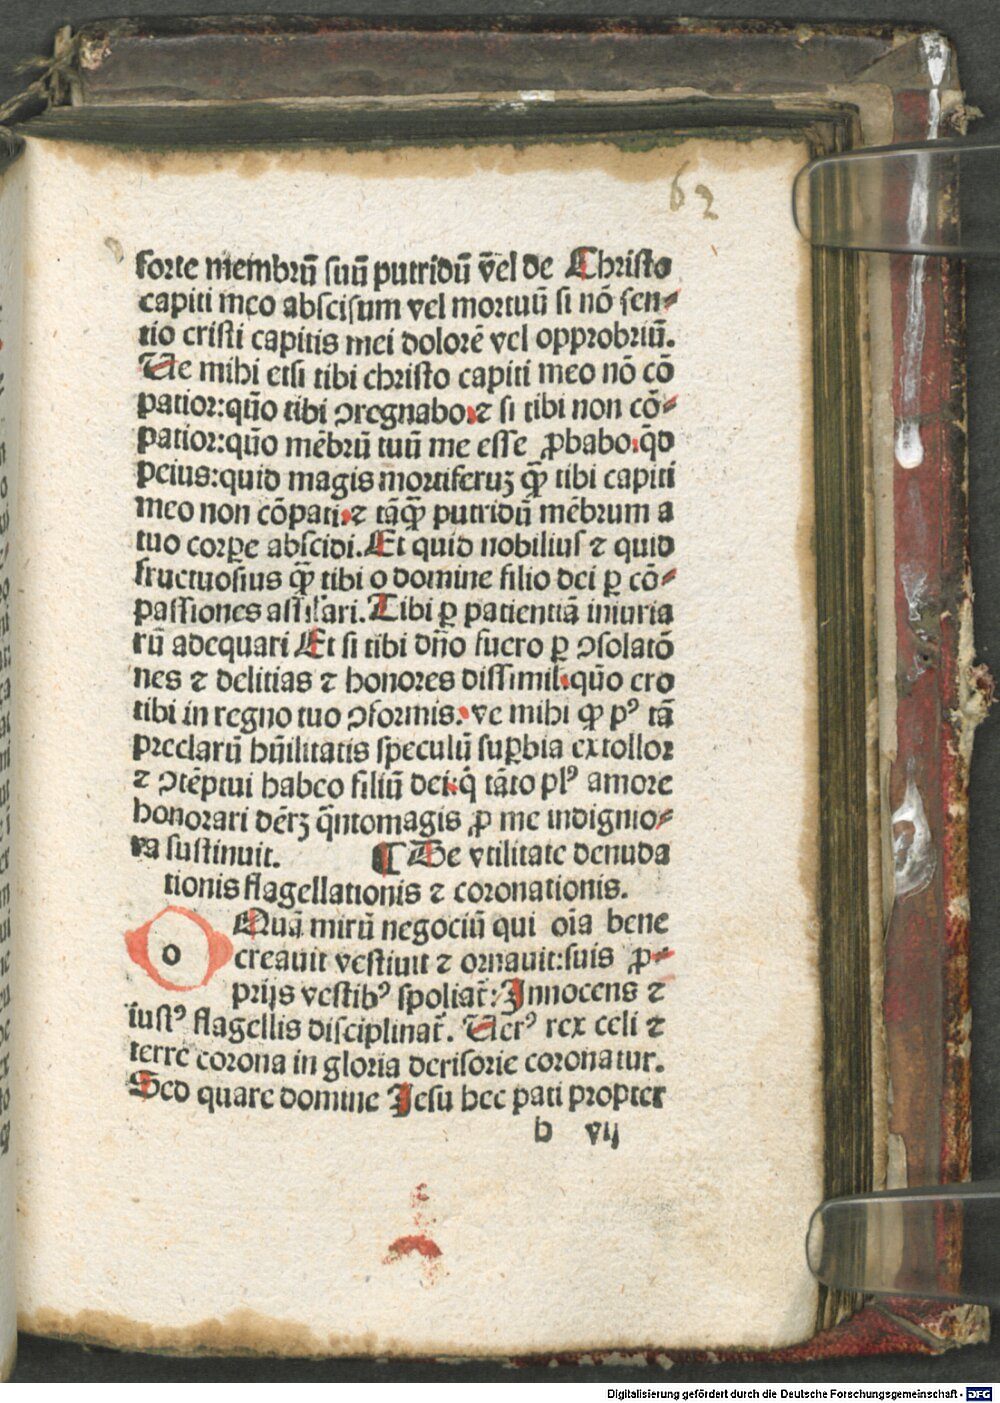 62
forte membrū suū putridū v̄el de Christo
capiti meo abscisum vel mortuū si nō sen⸗
tio cristi capitis mei dolorē vel opprobriū.
Ue mihi etsi tibi christo capiti meo nō cō
patior:quō tibi ↄregnabo.⁊ si tibi non cō⸗
patior:quō mēbrū tuū me esse ꝓbabo.qd̄
peius:quid magis mortiferuꝫ qꝫ̄ tibi capiti
meo non cōpati.⁊ tāqꝫ̄ putridū mēbrum a
tuo corꝑe abscidi.Et quid nobiliusͥ ⁊ quid
fructuosius qꝫ̄ tibi o domine filio dei ꝑ cō⸗
passiones assilari.Tibi ꝑ patientiā iniuria
rū adequari Et si tibi dn̄o fuero ꝑ ↄsolatō
nes ⁊ delitias ⁊ honores dissimil.quō ero
tibi in regno tuo ↄformis.ve mihi qꝫ̄ pꝰ tā
preclarū hūilitatis speculū suꝑbia extollor
⁊ ↄtēptui habeo filiū dei.q̄ tāto plꝰ amore
honorari dērꝫ q̄ntomagis ꝓ me indignio⸗
ra sustinuit. ¶ De vtilitate denuda
tionis flagellationis ⁊ coronationis.
o Quā mirū negociū qui oīa bene
creauit vestiuit ⁊ ornauit:suis ꝓ⸗
prijs vestibꝰ spoliat̄:Innocens ⁊
iustꝰ flagellis disciplinat̄. Uerꝰ rex celi ⁊
terre corona in gloria derisorie coronatur.
Sed quare domine Jesu hec pati propter
b vij
Digitalisierung gefördert durch die Deutsche Forschungsgemeinschaft - DFG